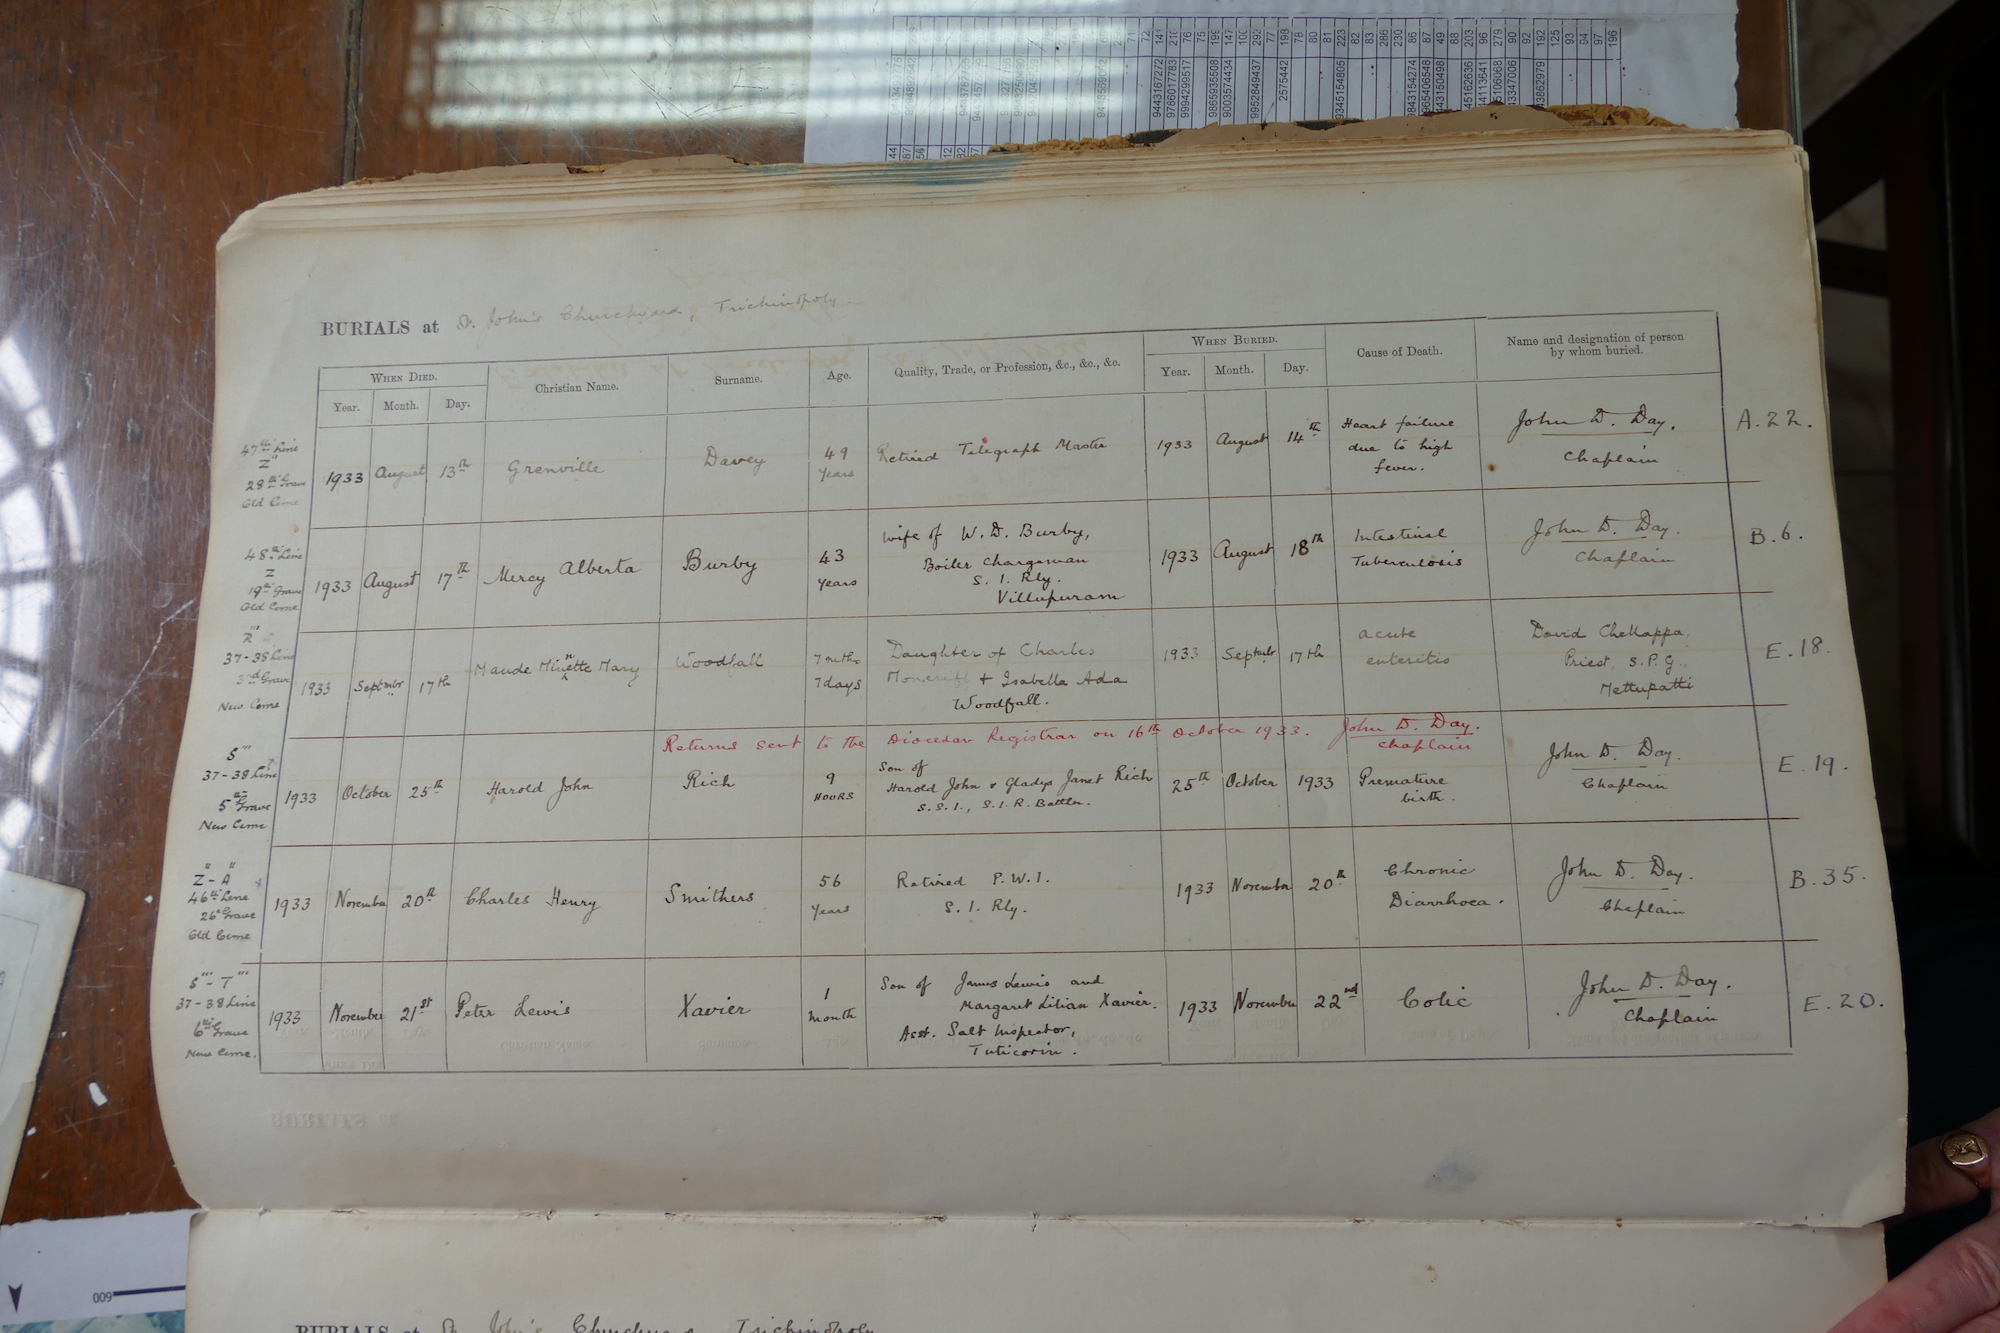 BURIALS at St. John's Churchyard, Trichinopoly.
WHEN DIED. Christian Name. Surname. Age. Quality, Trade, or Profession, &c., &c., &c. WHEN BURIED. Cause of Death. Name and designation of person by whom buried.
Year. Month. Day. Year. Month. Day.
47th Line
Z"
28th Grave
Old Ceme
1933 August 13th Grenville Davey 49 Years Retired Telegraph Master 1933 August 14th Heart failure due to high fever. John D. Day. Chaplain A.22.
48th Line
Z
19th Grave
Old Ceme
1933 August 17th Mercy Alberta Burby 43 Years
Wife of W. D. Burby,
Boiler Chargeman
S. I. Rly.
Villupuram
1933 August 18th Intestinal Tuberculosis John D. Day. Chaplain B.6.
R"
37-38 Line
3rd Grave
New Ceme
1933 September 17th Maude Minette Mary Woodfall 7 mths 7 days
Daughter of Charles
Moncrieff + Isabella Ada
Woodfall.
1933 September 17th acute enteritis David Chellappa, Priest, S.P.G., Mettupatti E.18.
Returns sent to the Diocesan Registrar on 16th October 1933. John D. Day. Chaplain
S"'
37-38 Line
5th Grave
New Ceme
1933 October 25th Harold John Rich 9 HOURS
Son of
Harold John & Gladys Janet Rich
S.S.I., S.I.R.
25th October 1933 Premature birth. John D. Day. Chaplain E.19.
Z"-A"
46th Line
26th Grave
Old Ceme
1933 November 20th Charles Henry Smithers 56 Years
Retired P.W.I.
S. I. Rly.
1933 November 20th Chronic Diarrhoea. John D. Day. Chaplain B.35.
S"'-T"'
37-38 Line
6th Grave
New Ceme.
1933 November 21st Peter Lewis Xavier 1 Month
Son of James Lewis and
Margaret Lilian Xavier.
Asst. Salt Inspector,
Tuticorin.
1933 November 22nd Colic John D. Day. Chaplain E.20.
009
BURIALS at St. John's Churchyard Trichinopoly